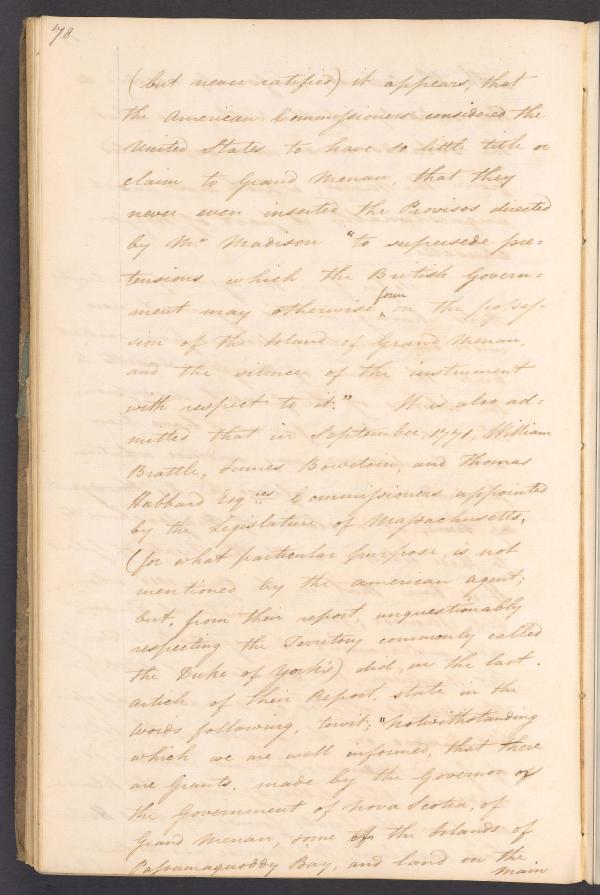 78
(but never ratified) it appears, that
the American Commissioners considered the
United States to have so little title or
claim to Grand Menan, that they
never even inserted the Provisos directed
by Mr Madison "to supersede pre=
tensions which the British Govern=
ment may otherwise form on the posses-
sion of the Island of Grand Menan,
and the silence of the instrument
with respect to it." It is also ad=
mitted that in September 1771, William
Brattle, James Bowdoin, and Thomas
Hubbard Esqires Commissioners appointed
by the Legislature of Massachusetts,
(for what particular purpose, is not
mentioned by the american agent;
but, from their report, unquestionably
respecting the Territory commonly called
the Duke of York's) did, in the last
article of their Report, state in the
words following, towit; "Notwithstanding
which we are well informed, that there
are Grants, made by the Governor of
the Government of Nova Scotia, of
Grand Menan, some of the Islands of
Passamaquoddy Bay, and land on the
main